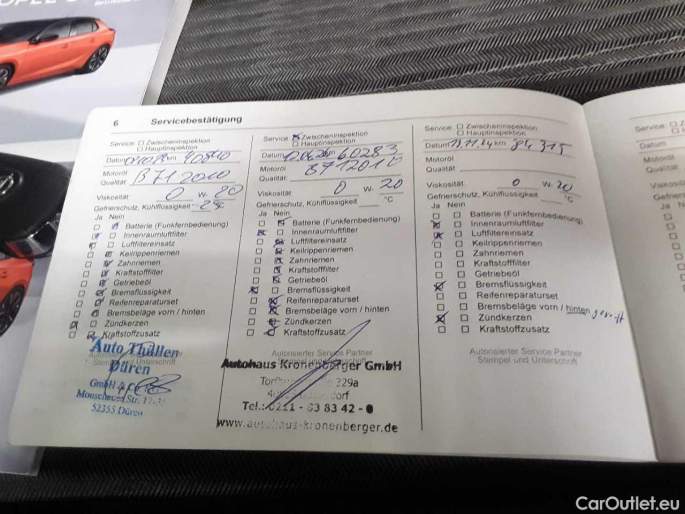 6 Servicebestätigung
Service: Zwischeninspektion
Hauptinspektion
Datum km
Motoröl
Qualität B712010
Viskosität 0 W- 20
Gefrierschutz, Kühlflüssigkeit °C
Ja Nein
Batterie (Funkfernbedienung)
Innenraumluftfilter
Luftfiltereinsatz
Keilrippenriemen
Zahnriemen
Kraftstofffilter
Getriebeöl
Bremsflüssigkeit
Reifenreparaturset
Bremsbeläge vorn / hinten
Zündkerzen
Kraftstoffzusatz
Auto Thüllen
Düren
GmbH &
52355 Düren
Service: Zwischeninspektion
Hauptinspektion
Datum km 60283
Motoröl
Qualität B712010
Viskosität 0 W- 20
Gefrierschutz, Kühlflüssigkeit °C
Ja Nein
Batterie (Funkfernbedienung)
Innenraumluftfilter
Luftfiltereinsatz
Keilrippenriemen
Zahnriemen
Kraftstofffilter
Getriebeöl
Bremsflüssigkeit
Reifenreparaturset
Bremsbeläge vorn / hinten
Zündkerzen
Kraftstoffzusatz
Autorisierter Service Partner
Autohaus Kronenberger GmbH
229a
Tel.: 0211 - 63 83 42 - 0
www.autohaus-kronenberger.de
Service: Zwischeninspektion
Hauptinspektion
Datum km 84 315
Motoröl
Qualität
Viskosität 0 W- 20
Gefrierschutz, Kühlflüssigkeit °C
Ja Nein
Batterie (Funkfernbedienung)
Innenraumluftfilter
Luftfiltereinsatz
Keilrippenriemen
Zahnriemen
Kraftstofffilter
Getriebeöl
Bremsflüssigkeit
Reifenreparaturset
Bremsbeläge vorn / hinten
Zündkerzen
Kraftstoffzusatz
Autorisierter Service Partner
Stempel und Unterschrift
Service:
Datum
Motoröl
Qualität
Viskosität
Ja Nein
CarOutlet.eu